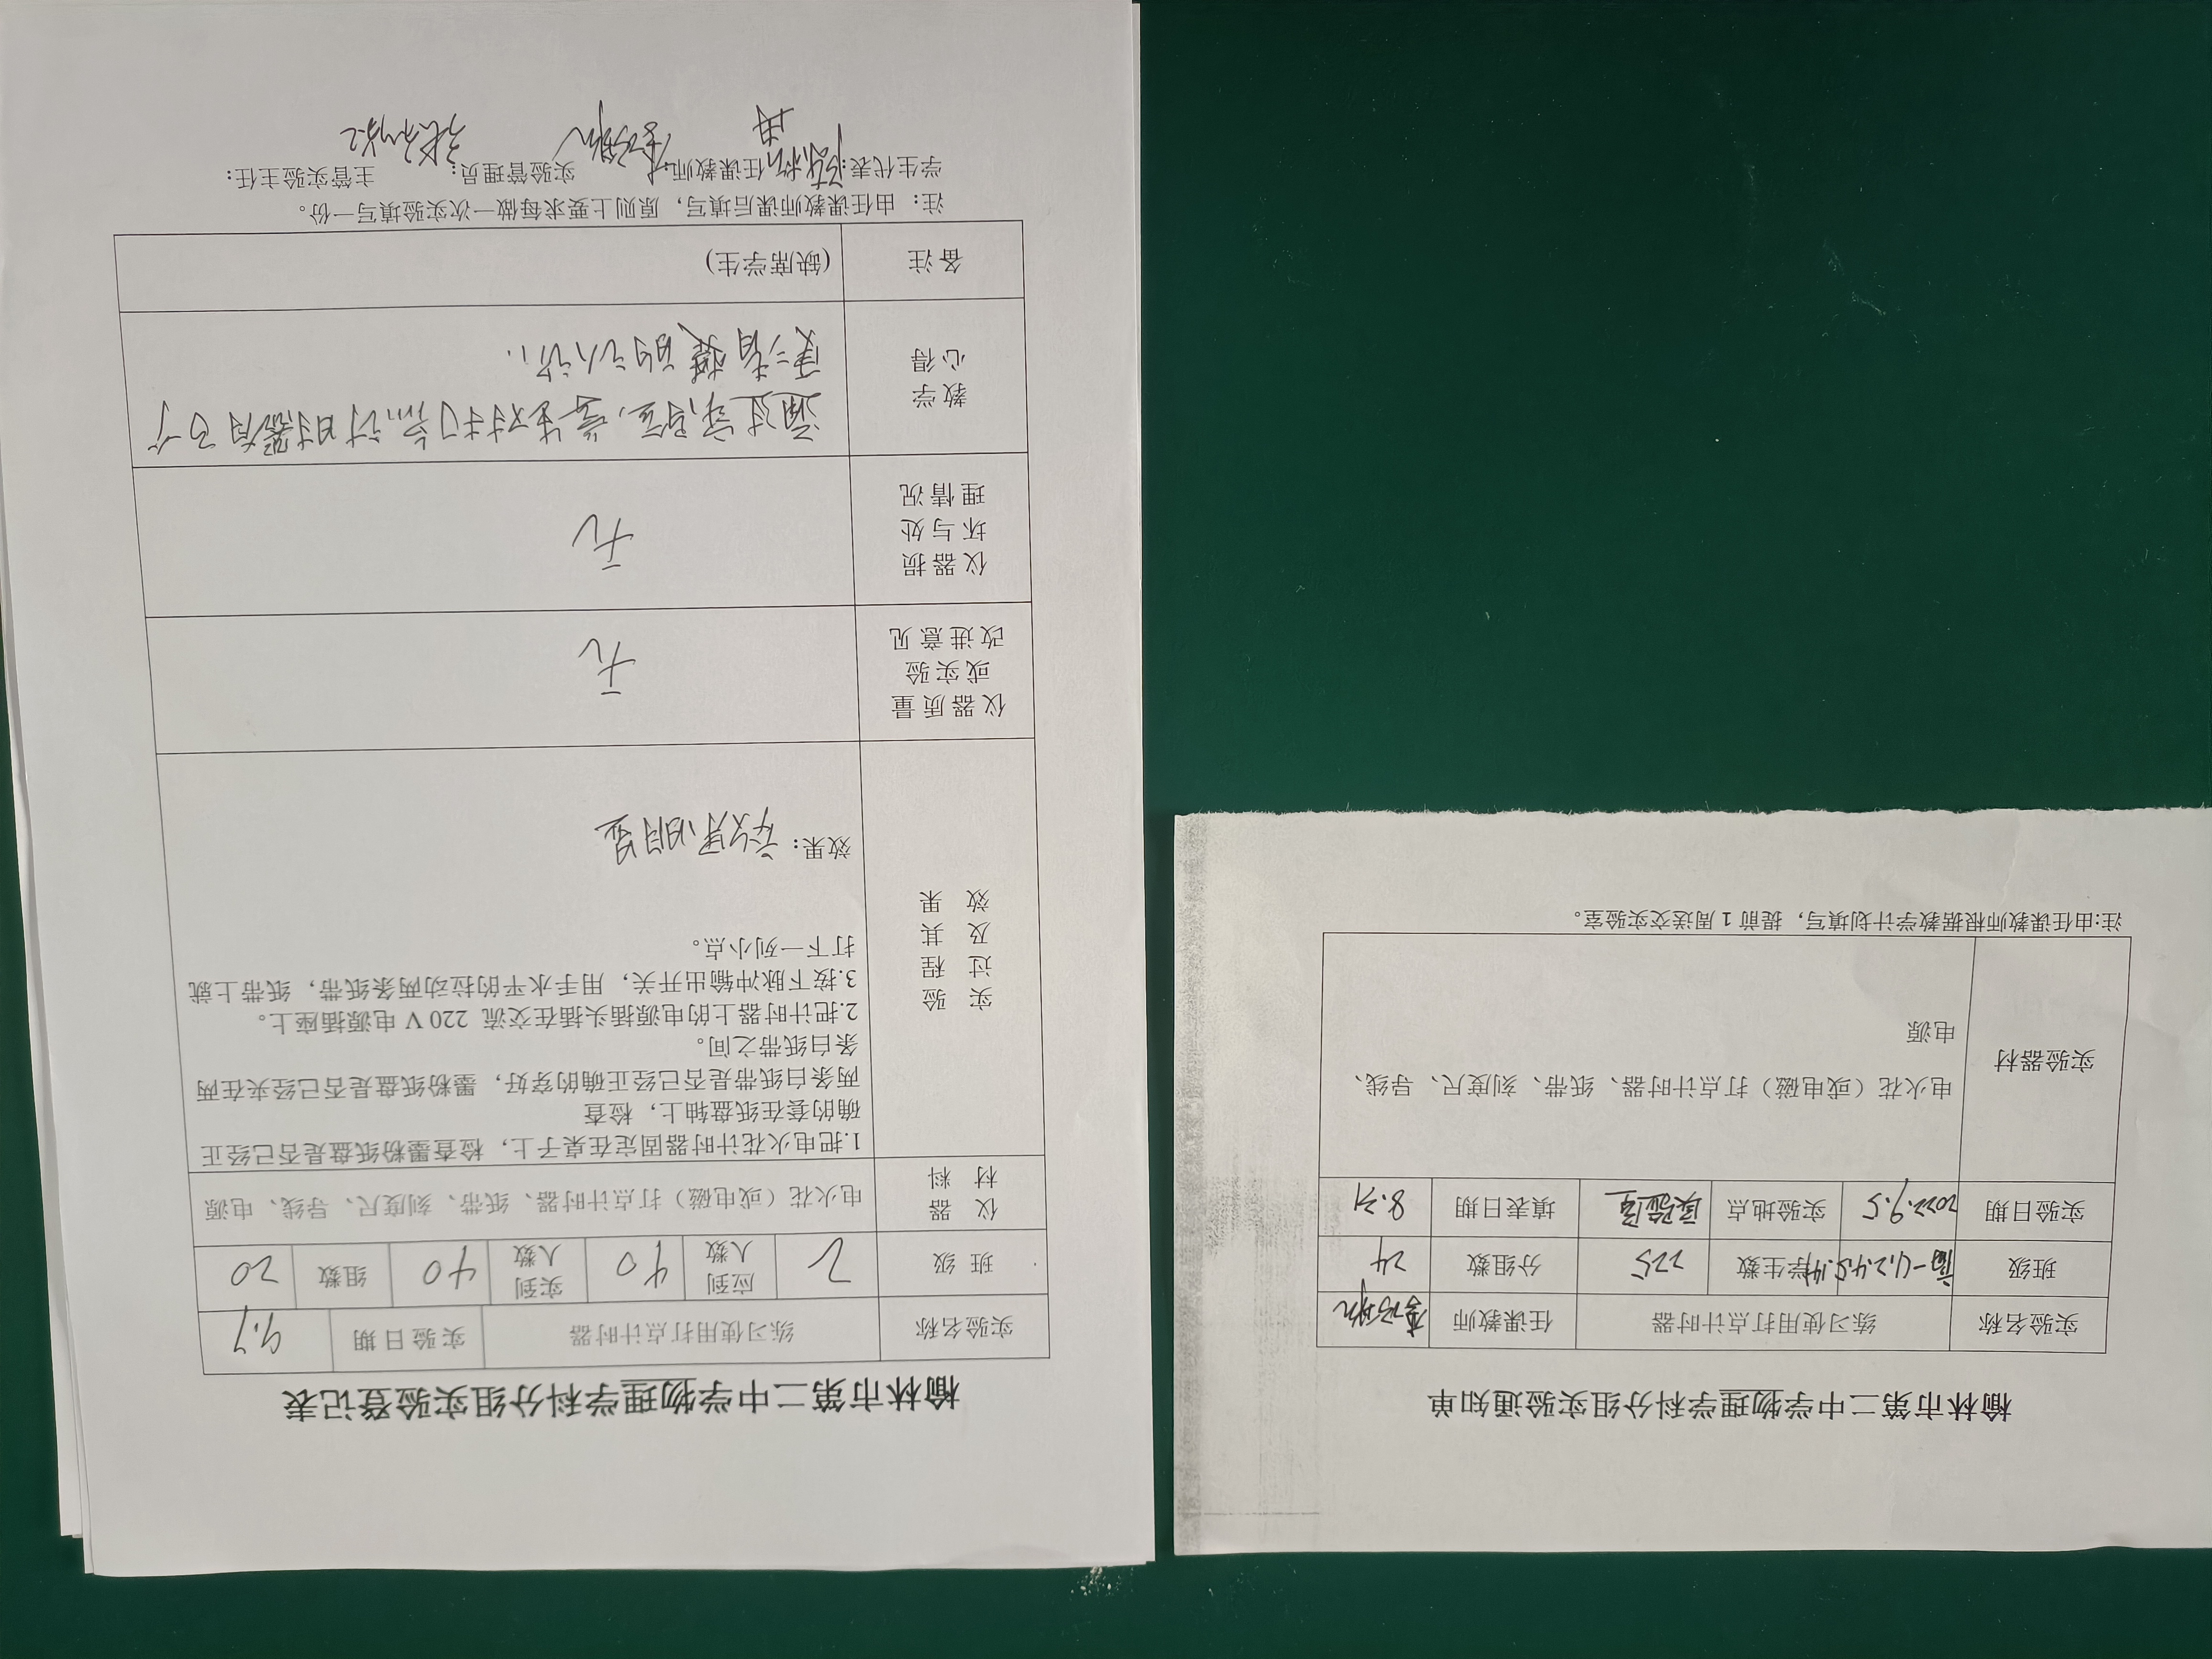 榆林市第二中学物理学科分组实验通知单
实验名称 练习使用打点计时器 任课教师
班级 高一(1.2.4.5.14) 学生数 225 分组数 24
实验日期 2022.9.5 实验地点 实验室 填表日期 8.31
实验器材 电火花（或电磁）打点计时器、纸带、刻度尺、导线、
电源
注:由任课教师根据教学计划填写，提前 1 周送交实验室。
榆林市第二中学物理学科分组实验登记表
实验名称 练习使用打点计时器 实验日期 9.7
班 级 2 应到人数 40 实到人数 40 组数 20
仪 器
材 料
电火花（或电磁）打点计时器、纸带、刻度尺、导线、电源
实 验
过 程
及 其
效 果
1.把电火花计时器固定在桌子上，检查墨粉纸盘是否已经正
确的套在纸盘轴上，检查
两条白纸带是否已经正确的穿好，墨粉纸盘是否已经夹在两
条白纸带之间。
2.把计时器上的电源插头插在交流 220 V 电源插座上。
3.按下脉冲输出开关，用手水平的拉动两条纸带，纸带上就
打下一列小点。
效果：效果明显
仪器质量
或实验
改进意见
无
仪器损
坏与处
理情况
无
教学
心得
通过实验，学生对打点计时器有了个
更清楚的认识.
备注 (缺席学生)
注：由任课教师课后填写，原则上要求每做一次实验填写一份。
学生代表: 任课教师: 实验管理员: 主管实验主任: